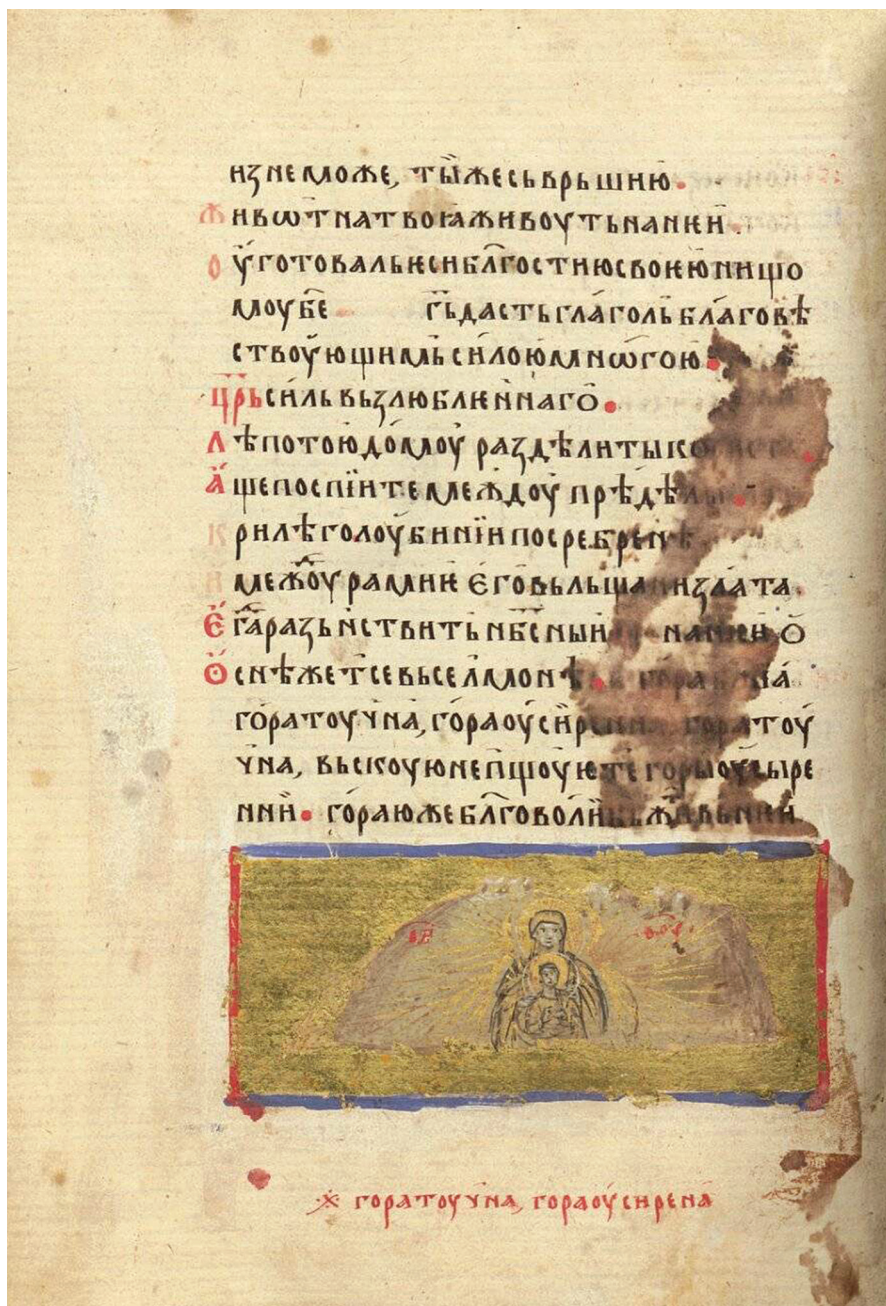 изнеможе, ты́жесьврьшию.
Живѡтнатвоꙗживоуть нанѥй.
Оу҆готовальѥсибл҃гостиюсвоѥюнищо
моубе гь҃дастьгла́гольбла́говѣ
ствоу́ющимьси́лоюмнѡ́гою.
Цр҃ьси́львьзлюблѥ́ннаго.
Лѣпотоюдо́моу раздѣлиты
А́щепоспи́те меж́доу прѣдѣлы
Крилѣголоу́бинїипосребренѣ
Имеж́доурамиѥ ѥговь из лата.
Ѥгдаразьнствитьнбⷭ҇ныи нанѥй
Осне́жетсевьселмонѣ. гора
го́ратоучна, го́раоуси́ре гора тоу
чна, вьскоуюнепщоуѥте горыоусыре
нний. го́раюжебл҃говоли́
гора тоучна, гораоусирена